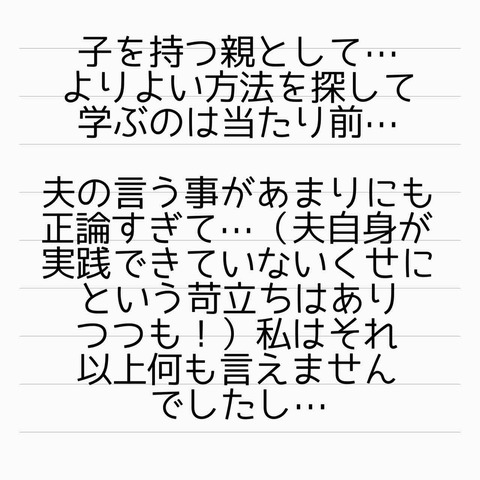 子を持つ親として…
よりよい方法を探して
学ぶのは当たり前…
夫の言う事があまりにも
正論すぎて…（夫自身が
実践できていないくせに
という苛立ちはあり
つつも！）私はそれ
以上何も言えません
でしたし…